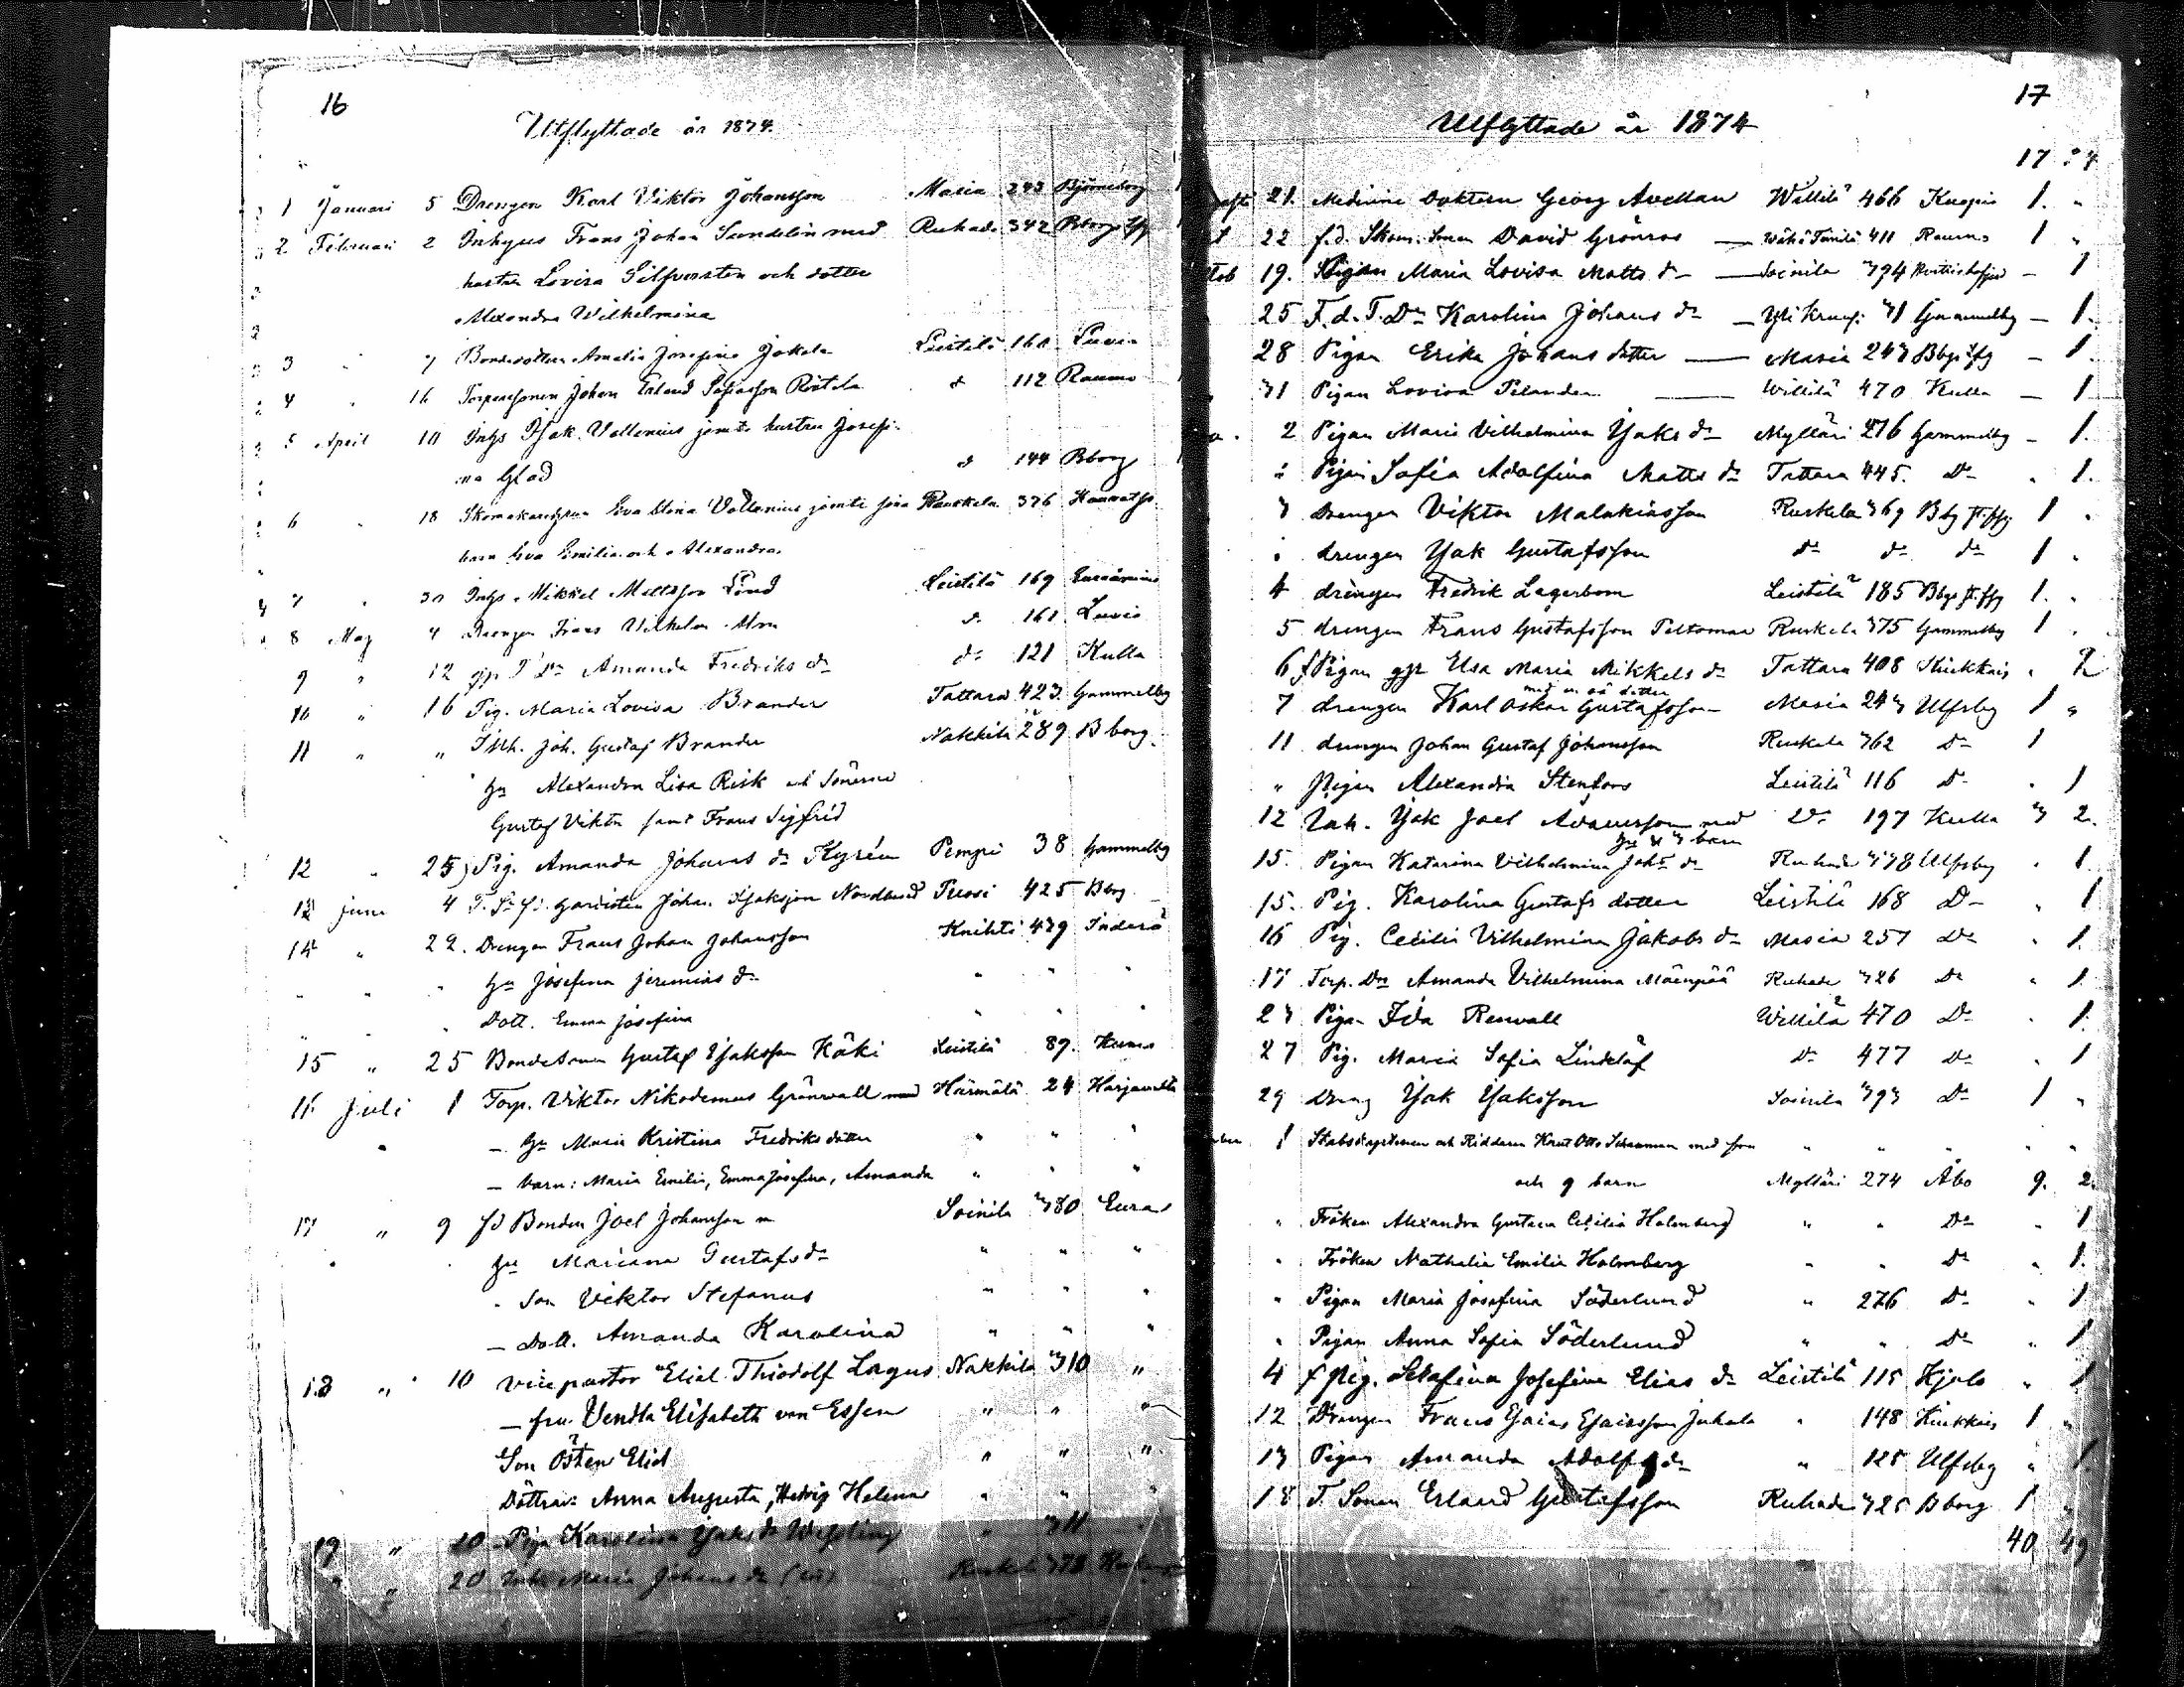 16
Utflyttade år 1874.
1 Januari 5 Drengen Karl Viktor Johansson Masia 243 Björneborg
2 Februari 2 Inhyses Frans Johan Sundelin med Ruhade 342 Bborgs lfg
hustru Lovisa Silfversten och dotter
Alexandra Wilhelmina
3 " 7 Bondedottren Amalia Josefina Jokela Leistilä 160 Luvia
4 " 16 Torparesonen Johan Erland Rostela d 112 Raumo
5 April 10 Inhs Isak Vallenius jemte hustru Josefi-
na Glad d 144 Bborg
6 " 18 Eva Ulrica Vallenius jemte sina Ruskela 376
barn Eva Emilia och Alexandra
7 " 30 Inhs Mikkel Mattsson Lind Leistilä 169
8 Maj 4 Drengen Frans Vilhelm Alm d. 161 Luvia
9 " 12 gfp T Dn Amanda Fredriks dr do 121 Kulla
10 " 16 Pig. Maria Lovisa Brander Tattara 423 Gammelby
11 " " Inh. Joh. Gustaf Brander Nakkila 289 Bborg
Hu Alexandra Lisa Risk och Sönerne
Gustaf Viktor samt Frans Sigfrid
12 " 25) Pig. Amanda Johans dr Kyrén Pempi 38 Gammelby
13 Juni 4 T. Sn fd. gardisten Johan Isaksson Nordlund Tuosi 425 Bborg
14 " 22. Drengen Frans Johan Johansson Knihti 479
" " " Hu Josefina Jeremias dr " " "
" " " Dott. Emma Josefina " " "
15 " 25 Bondesonen Gustaf Isaksson Käki Leistilä 89.
16 Juli 1 Torp. Viktor Nikodemus Grönvall med Härmälä 24 Harjavalta
" — Hu Maria Kristina Fredriks dotter " " "
— barn: Maria Emilia, Emma Josefina, Amanda " " "
17 " 9 fd Bonden Joel Johansson m Soinila 380 Eura
" " Hu Mariana Gustafs dr " " "
" Son Viktor Stefanus " " "
— Dott. Amanda Karolina " " "
18 " 10 vice pastor Eliel Thiodolf Lagus Nakkila 310 "
— fru Vendla Elisabeth von Essen " " "
Son Östen Eliel " " "
Döttrar: Anna Augusta, Hedvig Helena " " "
19 " 20 Pigan Karolina Isaks dr Wessling " 311 "
" " 20 Inhs Maria Johans dr Ruskela 378
17
Utflyttade år 1874
17 24
21. Medicine Doktorn Georg Avellan Willilä 466 Kuopio 1. "
22 f.d. Skom. Sonen David Grönros — 411 Raumo 1 "
19. Pigan Maria Lovisa Matts dr — Soinila 394 — 1
25 F.d. T. Dn Karolina Johans dr — 31 Gammelby — 1.
28 Pigan Erika Johans dotter — Masia 243 Bbgs lfg — 1.
31 Pigan Lovisa Pelander — Willilä 470 Kulla — 1
2 Pigan Maria Vilhelmina Isaks dr Mylläri 276 Gammelby — 1.
" Pigan Sofia Adolfina Matts dr Tattara 445. Do " 1.
3 Drengen Viktor Malakiasson Ruskela 369 1 "
" drengen Isak Gustafsson do do do 1 "
4 drengen Fredrik Lagerbom Leistilä 185 1. "
5 drengen Frans Gustafsson Peltomaa Ruskela 375 Gammelby 1 "
6 Pigan gfp Elsa Maria Mikkels dr Tattara 408 Kiukkais " 2
med en oä dotter
7 drengen Karl Oskar Gustafsson Masia 243 Ulfsby 1 "
11 drengen Johan Gustaf Johansson Ruskela 362 Do 1
" Pigan Alexandra Stenfors Leistilä 116 Do " 1
12 Inh. Isak Joel Adamsson med Do 197 Kulla 3 2.
Hu o 3 barn
15. Pigan Katarina Vilhelmina Johs dr Ruhade 338 Ulfsby " 1
15. Pig. Karolina Gustafs dotter Leistilä 168 Do " 1
16 Pig. Cecilia Vilhelmina Jakobs dr Masia 257 Do " 1.
17 Torp. Dn Amanda Vilhelmina Mäenpää Ruhade 326 Do " 1
23 Pigan Ida Renvall Willilä 470 Do " 1.
27 Pig. Maria Sofia Lindelöf Do 477 Do " 1
29 Dreng Isak Isaksson Soinila 393 Do 1 "
1 Stabskaptenen och Riddaren Knut Otto Schauman med fru " " " " "
och 9 barn Mylläri 274 Åbo 9. 2.
" Fröken Alexandra Gustava Cecilia Holmberg " " Do " 1
" Fröken Nathalia Emilia Holmberg " " Do " 1.
" Pigan Maria Josefina Söderlund " 276 Do " 1
" Pigan Anna Sofia Söderlund " " Do " 1
4 f Pig. Serafina Josefina Elias dr Leistilä 115 Kjulo " 1
12 Drengen Frans Esaias Esaiasson Juhola " 148 Kiukkais 1 "
13 Pigan Amanda Adolfs dr " 125 Ulfsby " 1.
18 T. Sonen Erland Gustafsson Ruhade 325 Bborg 1 "
40 49